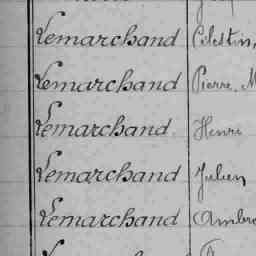 Lemarchand Célestin,
Lemarchand Pierre. M
Lemarchand. Henri
Lemarchand Julien
Lemarchand Ambro